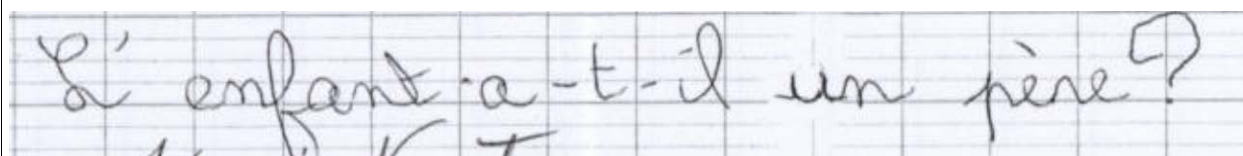 L'enfant-a-t-il un père?